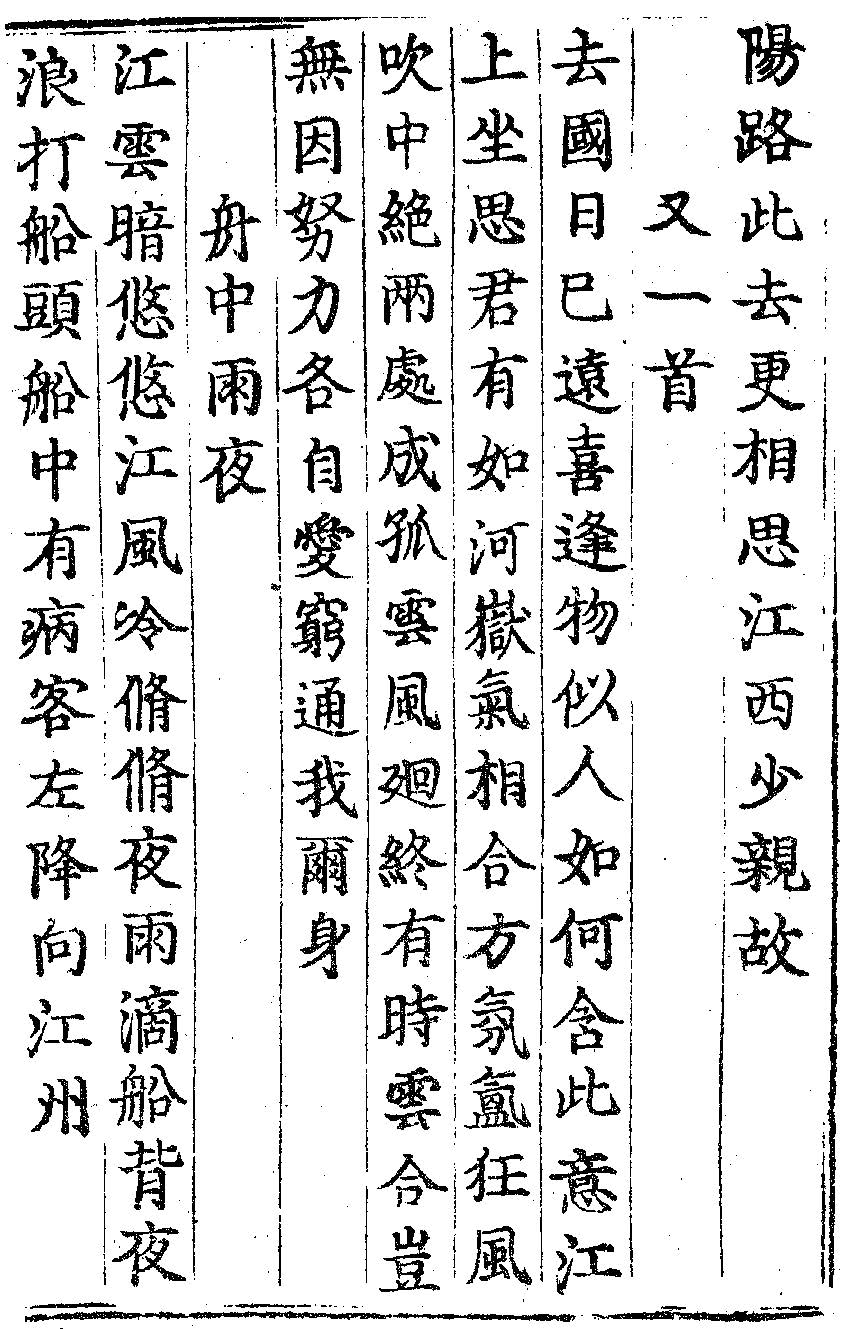 陽路此去更相思江西少親故
又一首
去國日已遠喜逢物似人如何含此意江
上坐思君有如河嶽氣相合方氛氳狂風
吹中絕兩處成孤雲風廻終有時雲合豈
無因努力各自愛窮通我爾身
舟中雨夜
江雲暗悠悠江風冷脩脩夜雨滴船背夜
浪打船頭船中有病客左降向江州